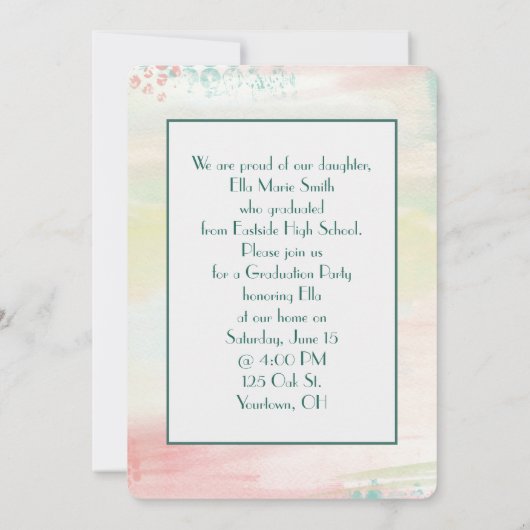 We are proud of our daughter,
Ella Marie Smith
who graduated
from Eastside High School.
Please join us
for a Graduation Party
honoring Ella
at our home on
Saturday, June 15
@ 4:00 PM
125 Oak St.
Yourtown, OH